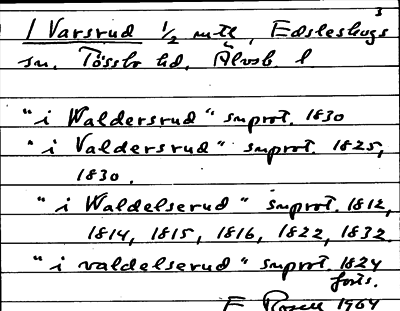 3
1 Varsrud ½ mtl, Edsleskogs
sn. Tössbo hd, Älvsb. l
"i Waldersrud" smprot. 1830
"i Valdersrud" smprot. 1825,
1830.
"i Waldelserud" smprot. 1812,
1814, 1815, 1816, 1822, 1832.
"i valdelserud" smprot. 1824
forts.
E Rosell 1964